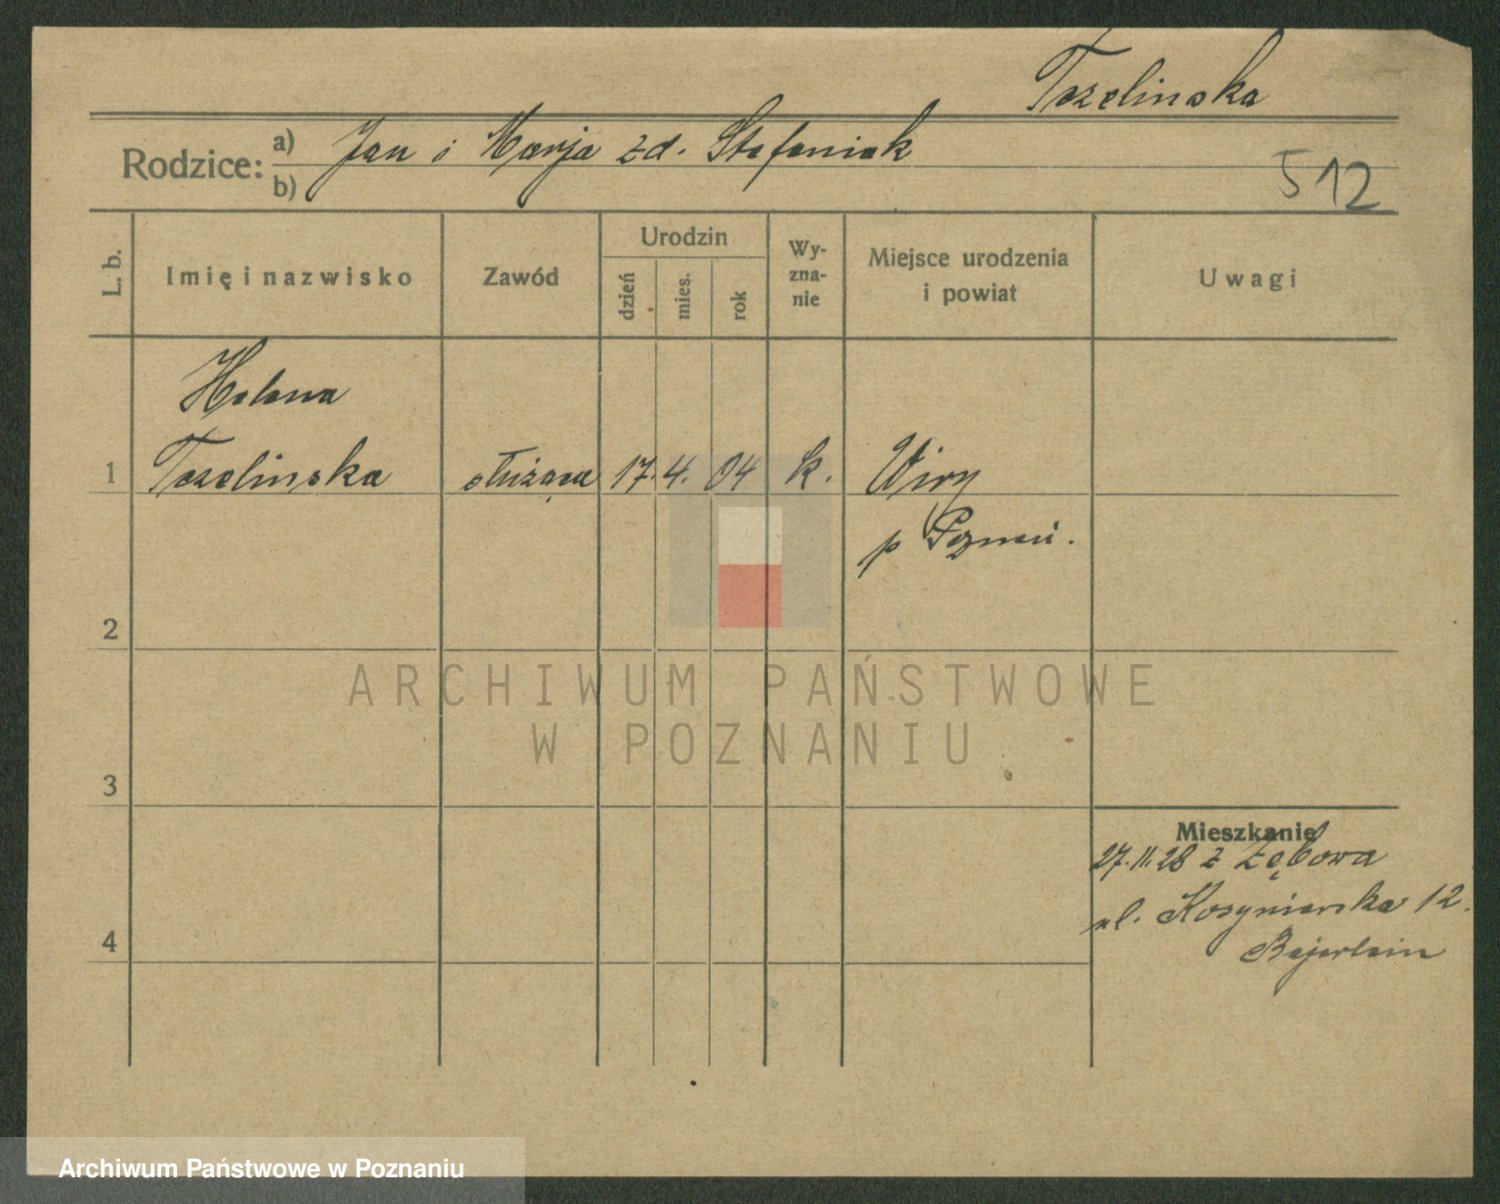 Tczelinska
Rodzice:
a) Jan i Marja zd. Stefaniak
b)
512
L. b.
Imię i nazwisko
Zawód
Urodzin
dzień
mies.
rok
Wy-
zna-
nie
Miejsce urodzenia
i powiat
Uwagi
Helena
1 Tczelinska służąca 17. 4. 04 k. Wiry
p Poznań.
2
3
4
Mieszkanie
27.11.28 z Zębowa
ul. Kosyniarska 12.
Bejerlein
ARCHIWUM PAŃSTWOWE
W POZNANIU
Archiwum Państwowe w Poznaniu